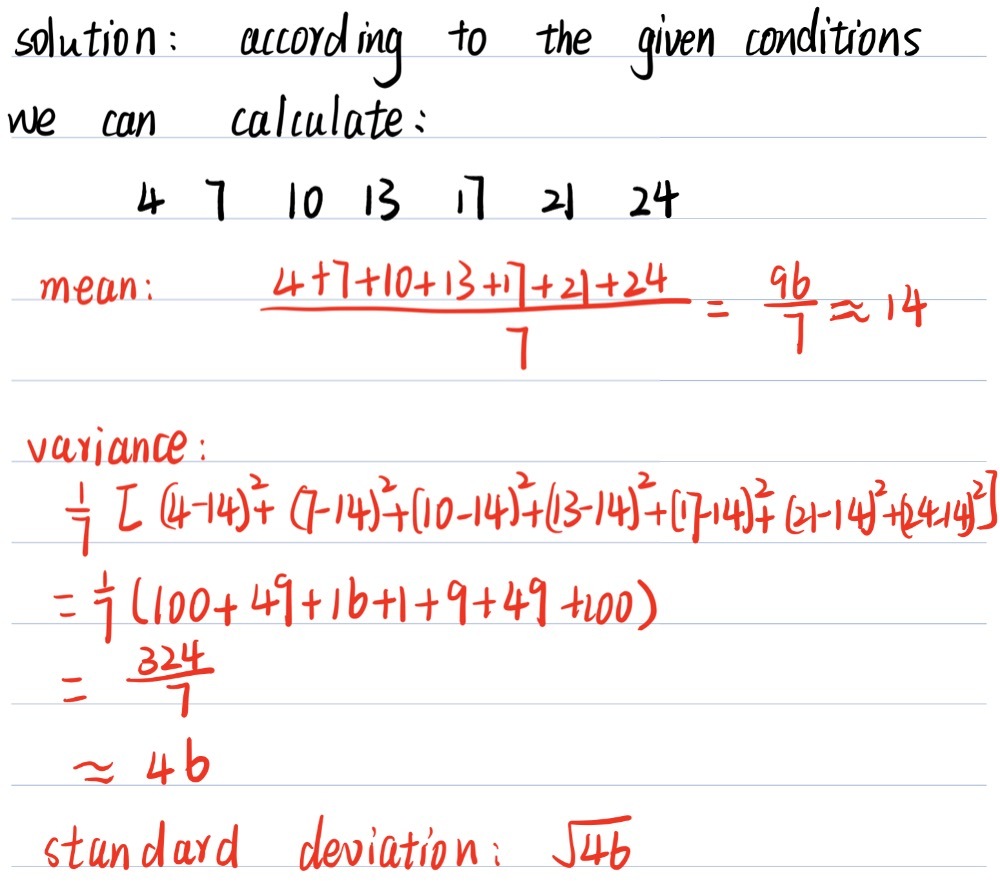 solution: according to the given conditions
we can calculate:
4 7 10 13 17 21 24
mean: (4+7+10+13+17+21+24)/7 = 96/7 ≈ 14
variance:
1/7 [(4-14)²+(7-14)²+(10-14)²+(13-14)²+(17-14)²+(21-14)²+(24-14)²]
= 1/7 (100+49+16+1+9+49+100)
= 324/7
≈ 46
standard deviation: √46